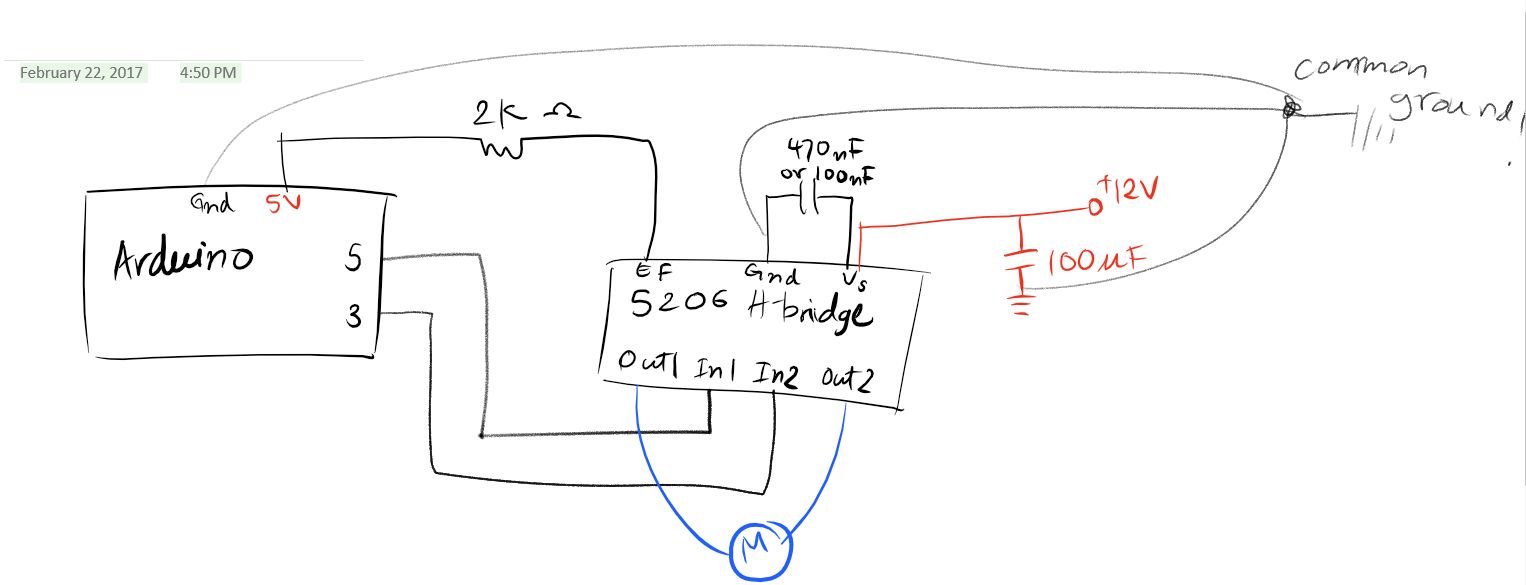 February 22, 2017 4:50 PM
common
ground
2K Ω
470nF
or 100nF
+12V
Gnd 5V
Arduino
5
3
100uF
EF Gnd Vs
5206 H-bridge
Out1 In1 In2 Out2
M